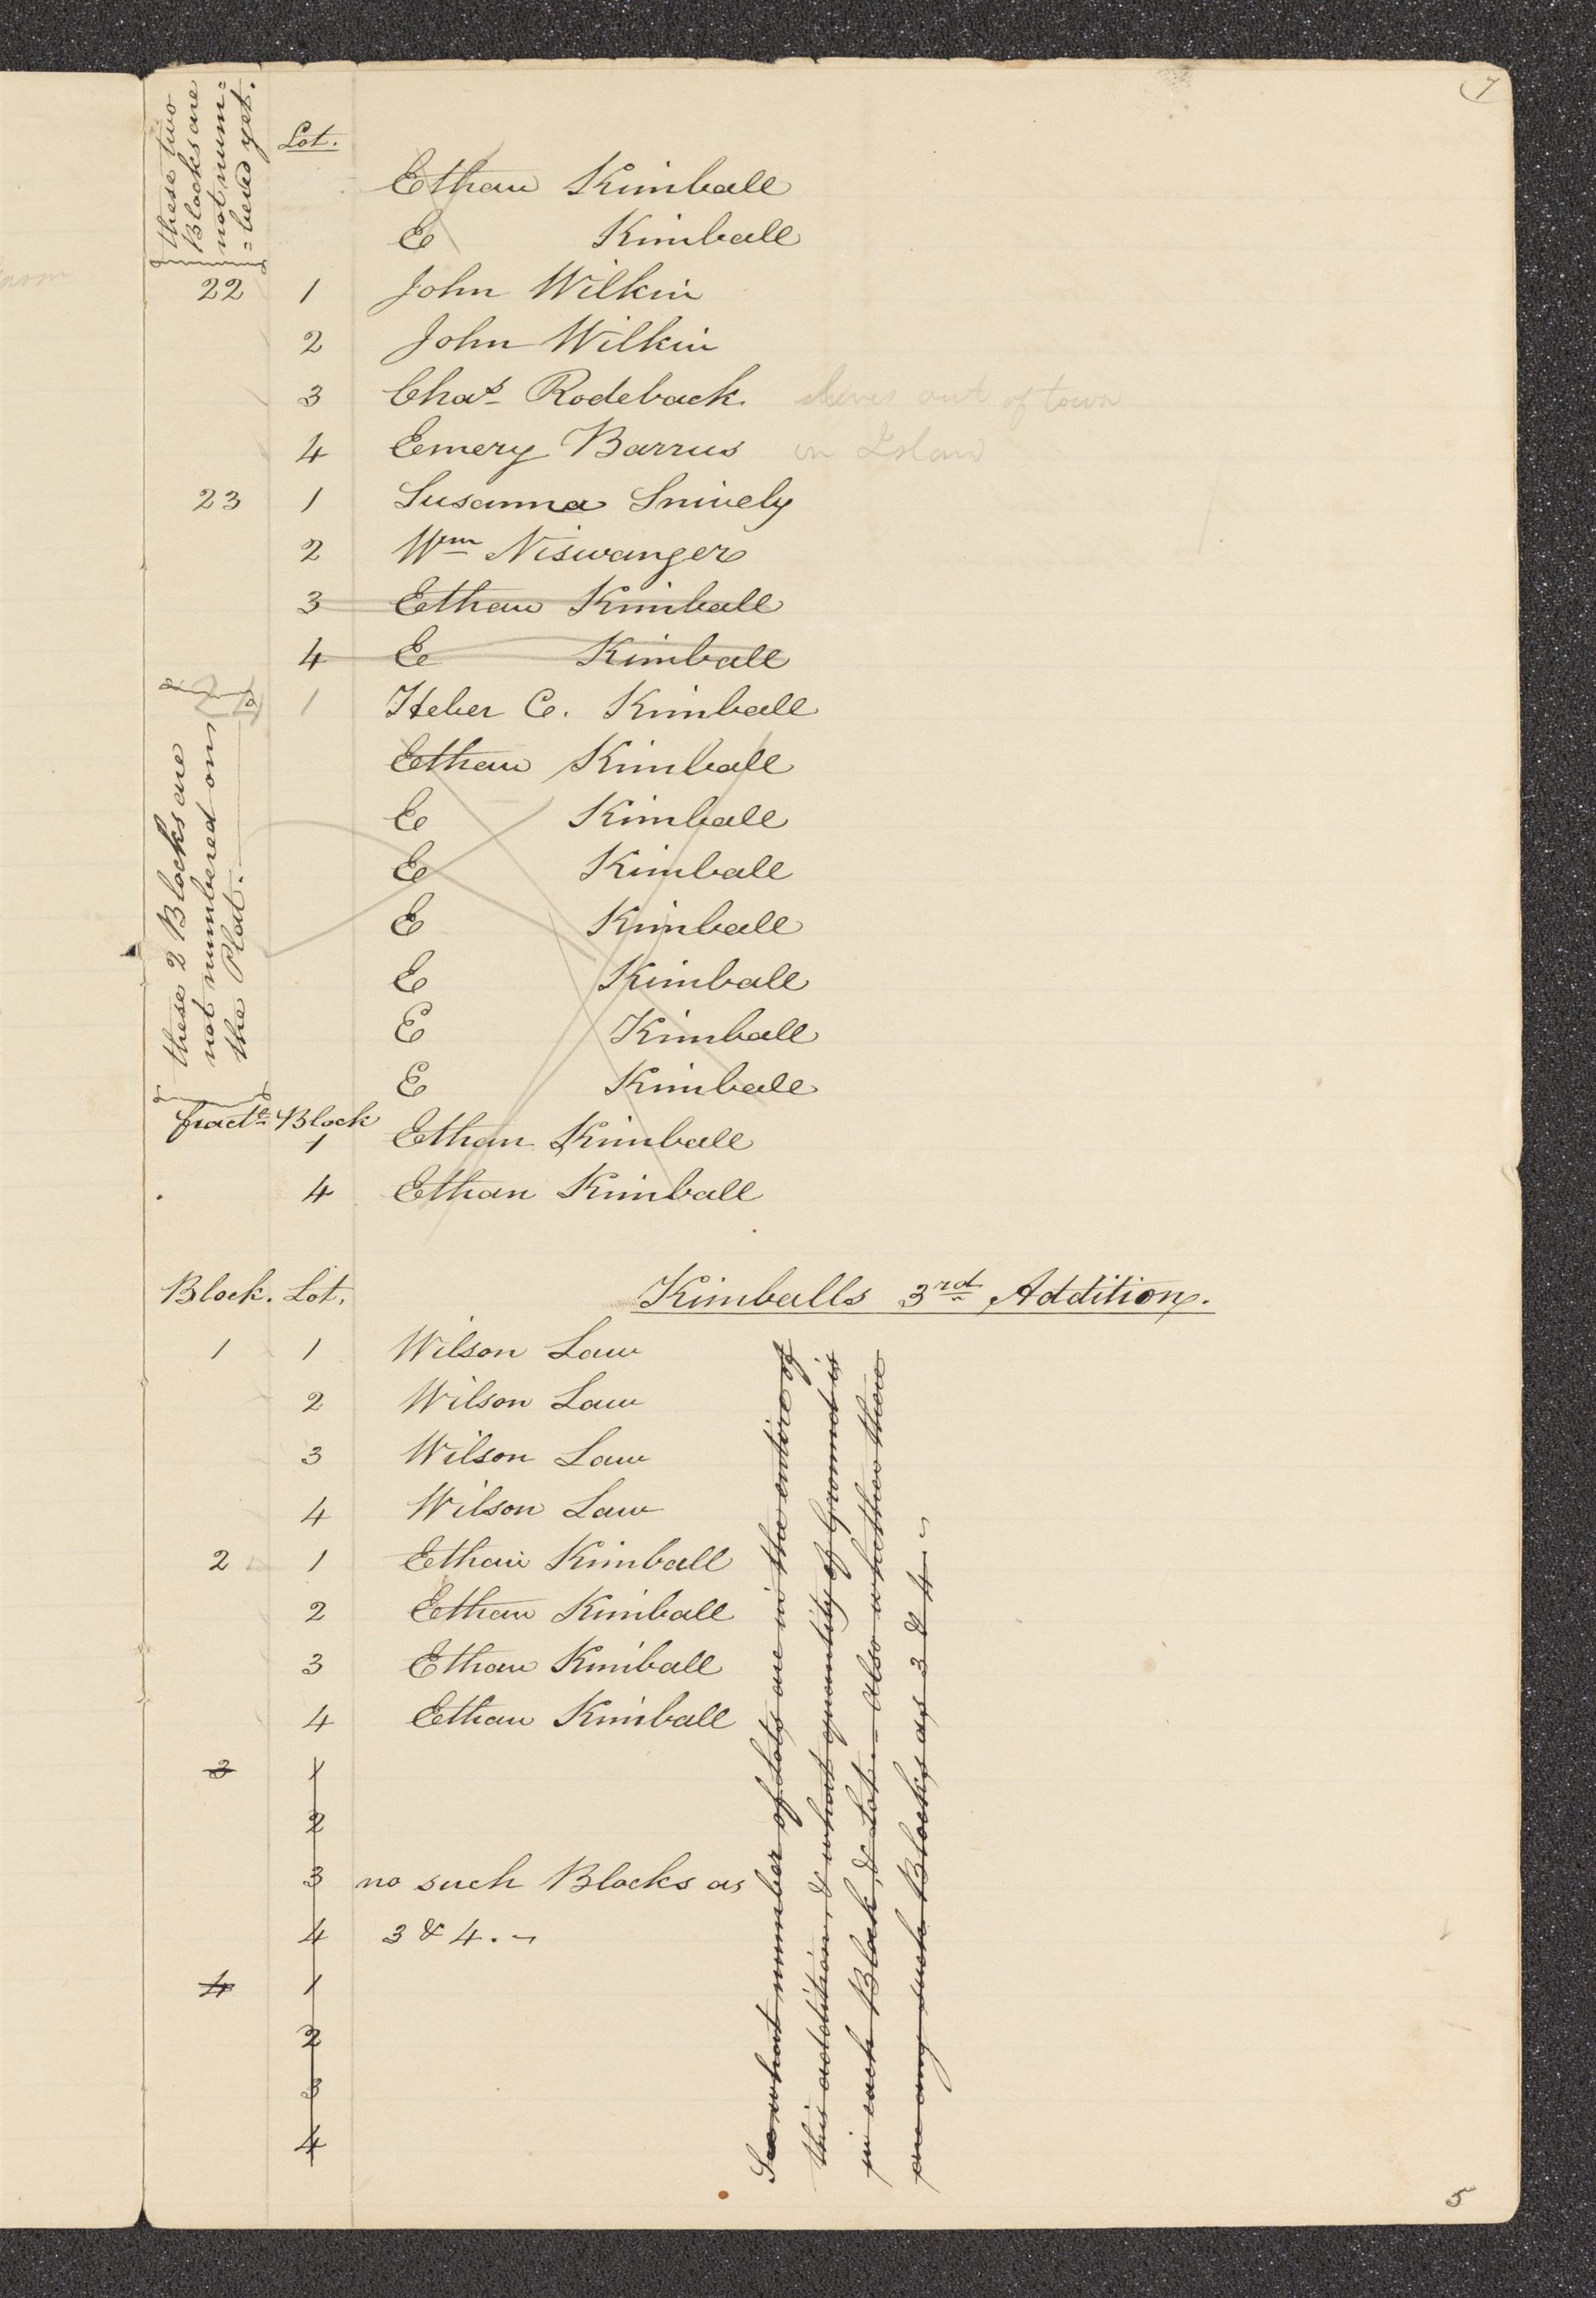 7
these two
Blocks are
not num=
=bered yet.
Lot.
Ethan Kimball
E Kimball
22 1 John Wilkin
2 John Wilkin
3 Chas Rodeback. lives out of town
4 Eemery Barrus on Island
23 1 Susanna Snively
2 Wm Niswanger
3 Ethan Kimball
4 E Kimball
1 Heber C. Kimball
these 2 Blocks are
not numbered on
the Plat.
Ethan Kimball
E Kimball
E Kimball
E Kimball
E Kimball
E Kimball
E Kimball
Block
1 Ethan Kimball
4 Ethan Kimball
Block. Lot. Kimballs 3rd Addition.
1 1 Wilson Law
2 Wilson Law
3 Wilson Law
4 Wilson Law
2 1 Ethan Kimball
2 Ethan Kimball
3 Ethan Kimball
4 Ethan Kimball
3 1
2
3 no such Blocks as
4 3 & 4. ~
4 1
2
3
4
See what number of Lots are in the entire of
this addition, & what quantity of Ground is
in each Block, & Lot:- Also whether there
are any such Blocks as 3 & 4. ~
5